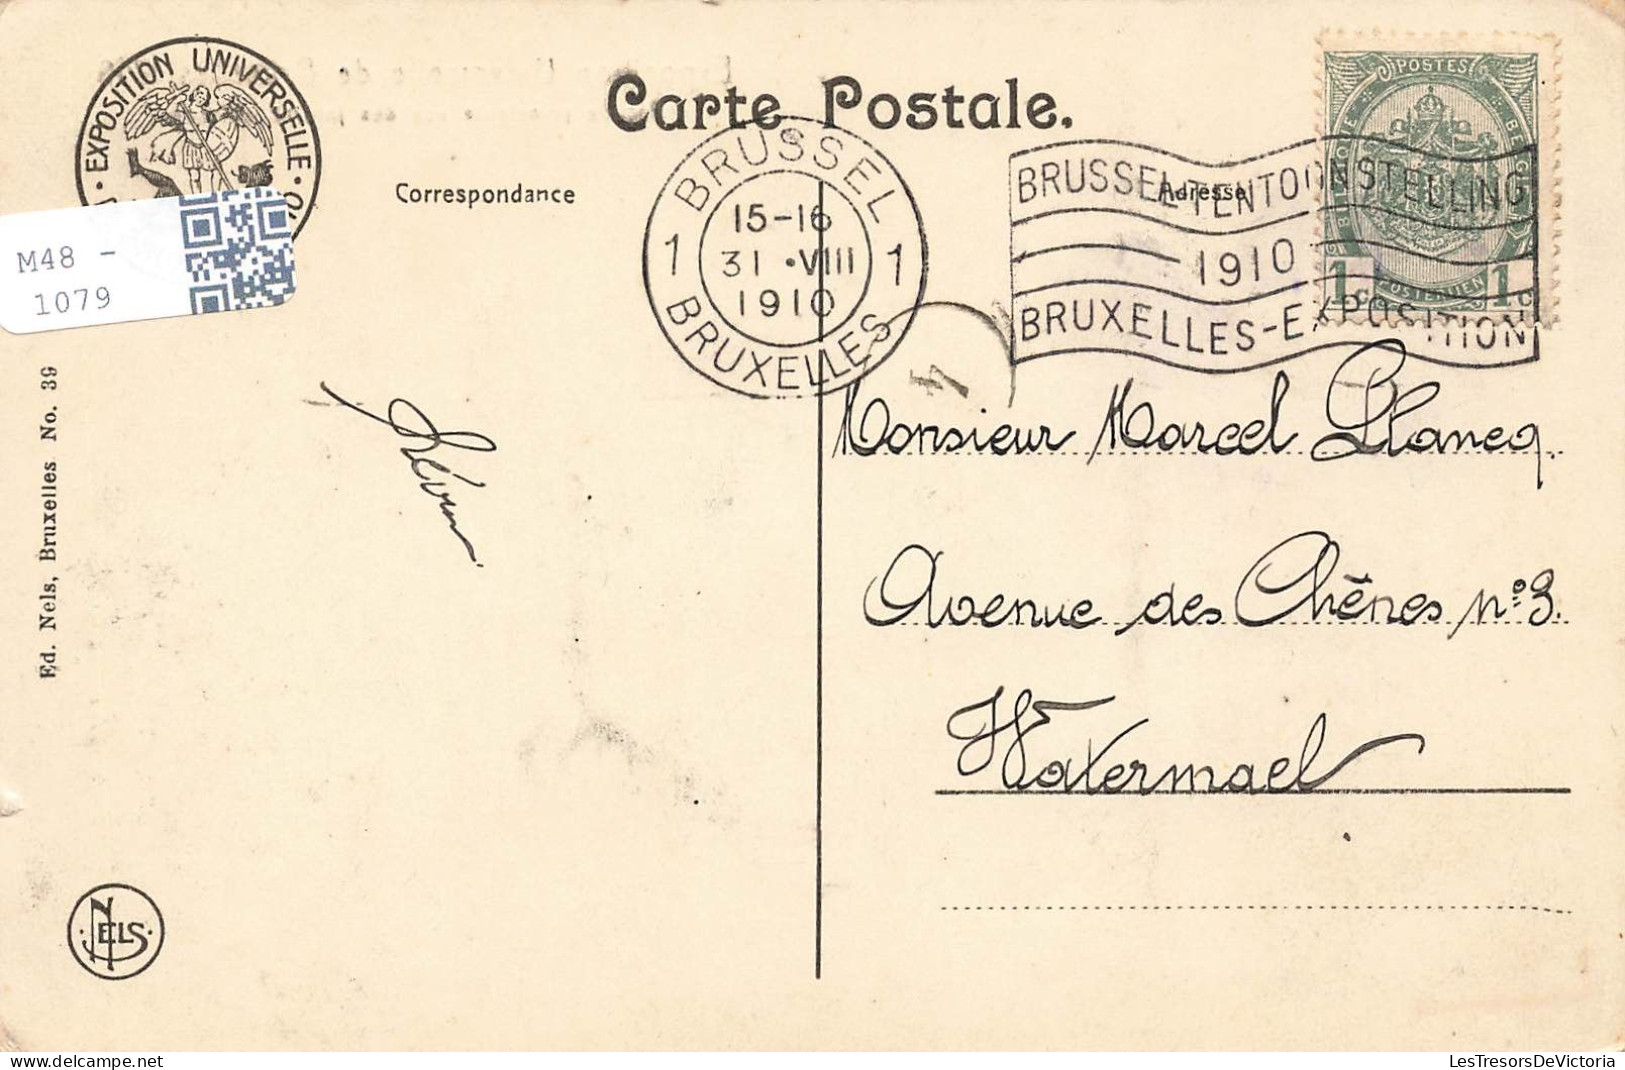 EXPOSITION UNIVERSELLE
Carte Postale.
Correspondance
Adresse
M48 -
1079
BRUSSEL
1 15-16 1
31 · VIII
1910
BRUXELLES
BRUSSEL-TENTOONSTELLING
1910
BRUXELLES-EXPOSITION
POSTES
1c POSTERIJEN 1c
Monsieur Marcel Llaneq.
Avenue des Chênes nº 3.
Watermael
Ed. Nels, Bruxelles No. 39
NELS
LesTresorsDeVictoria